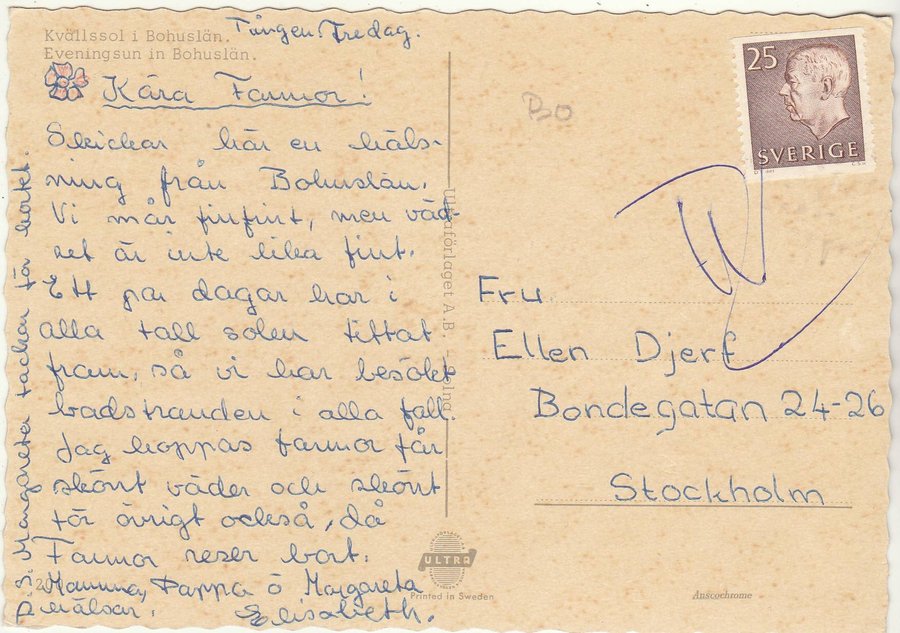 Kvällssol i Bohuslän.
Eveningsun in Bohuslän.
Tången. Fredag.
Kära Farmor!
Skickar här en häls-
ning från Bohuslän.
Vi mår finfint, men väd-
ret är inte lika fint.
Ett par dagar har i
alla fall solen tittat
fram, så vi har besökt
badstranden i alla fall.
Jag hoppas farmor får
skönt väder och skönt
för övrigt också, då
Farmor reser bort.
Mamma, Pappa o Margareta
hälsar. Elisabeth.
P.S. Margareta tackar för kortet.
Ultraförlaget A.B.
BO
25
SVERIGE
Fru
Ellen Djerf
Bondegatan 24-26
Stockholm
ULTRA
Printed in Sweden
Anscochrome